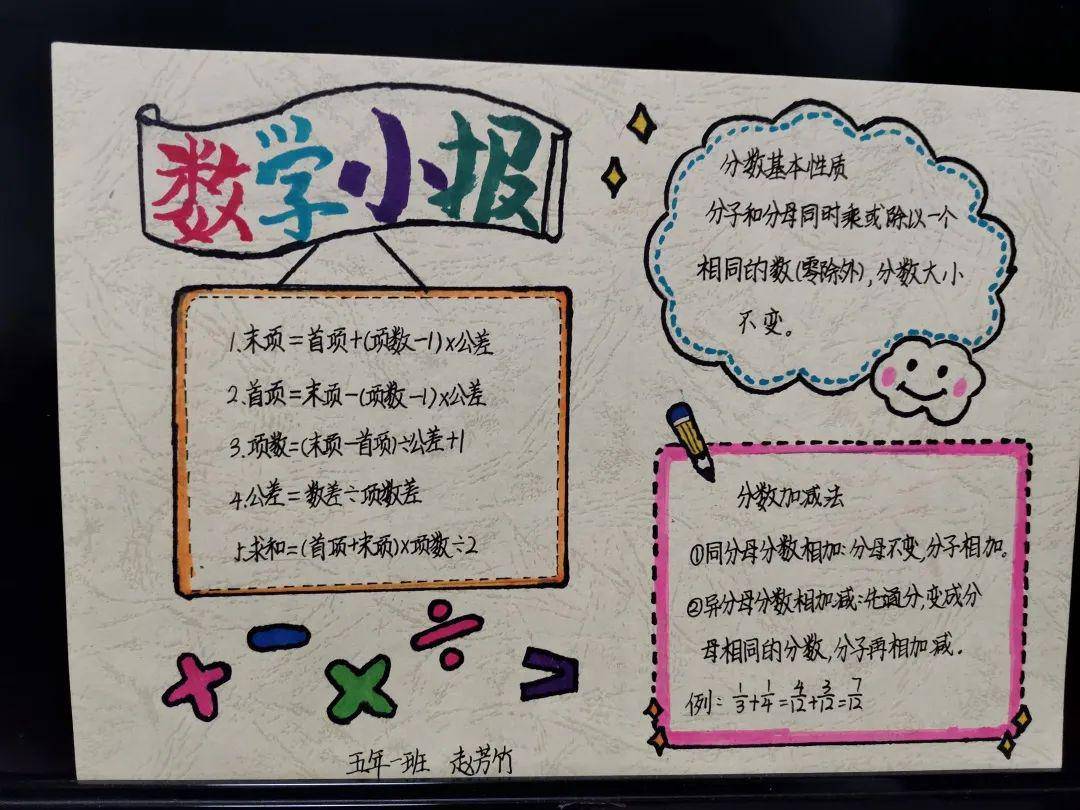 数学小报
1.末项=首项+(项数-1)×公差
2.首项=末项-(项数-1)×公差
3.项数=(末项-首项)÷公差+1
4.公差=数差÷项数差
5.求和=(首项+末项)×项数÷2
分数基本性质
分子和分母同时乘或除以一个
相同的数(零除外),分数大小
不变。
分数加减法
①同分母分数相加:分母不变,分子相加。
②异分母分数相加减:先通分,变成分
母相同的分数,分子再相加减.
例: 1/3+1/4=4/12+3/12=7/12
五年一班 赵芳竹